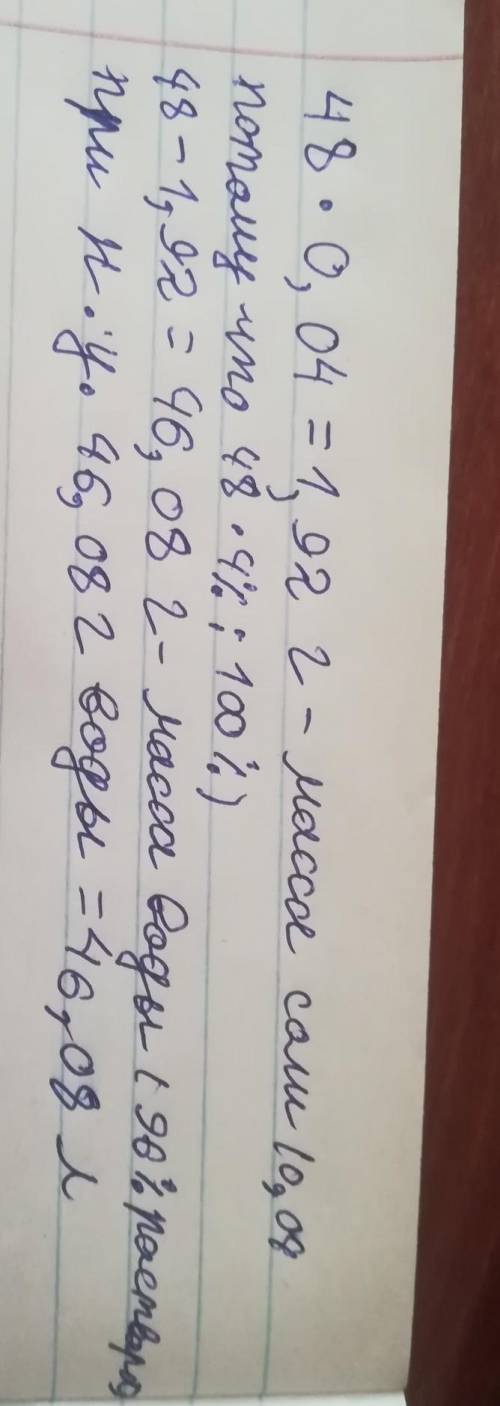 48 · 0,04 = 1,92 г - масса соли (0,04
потому что 48 · 4% : 100%)
48 - 1,92 = 46,08 г - масса воды (96% раствора
при н.у. 46,08 г воды = 46,08 л